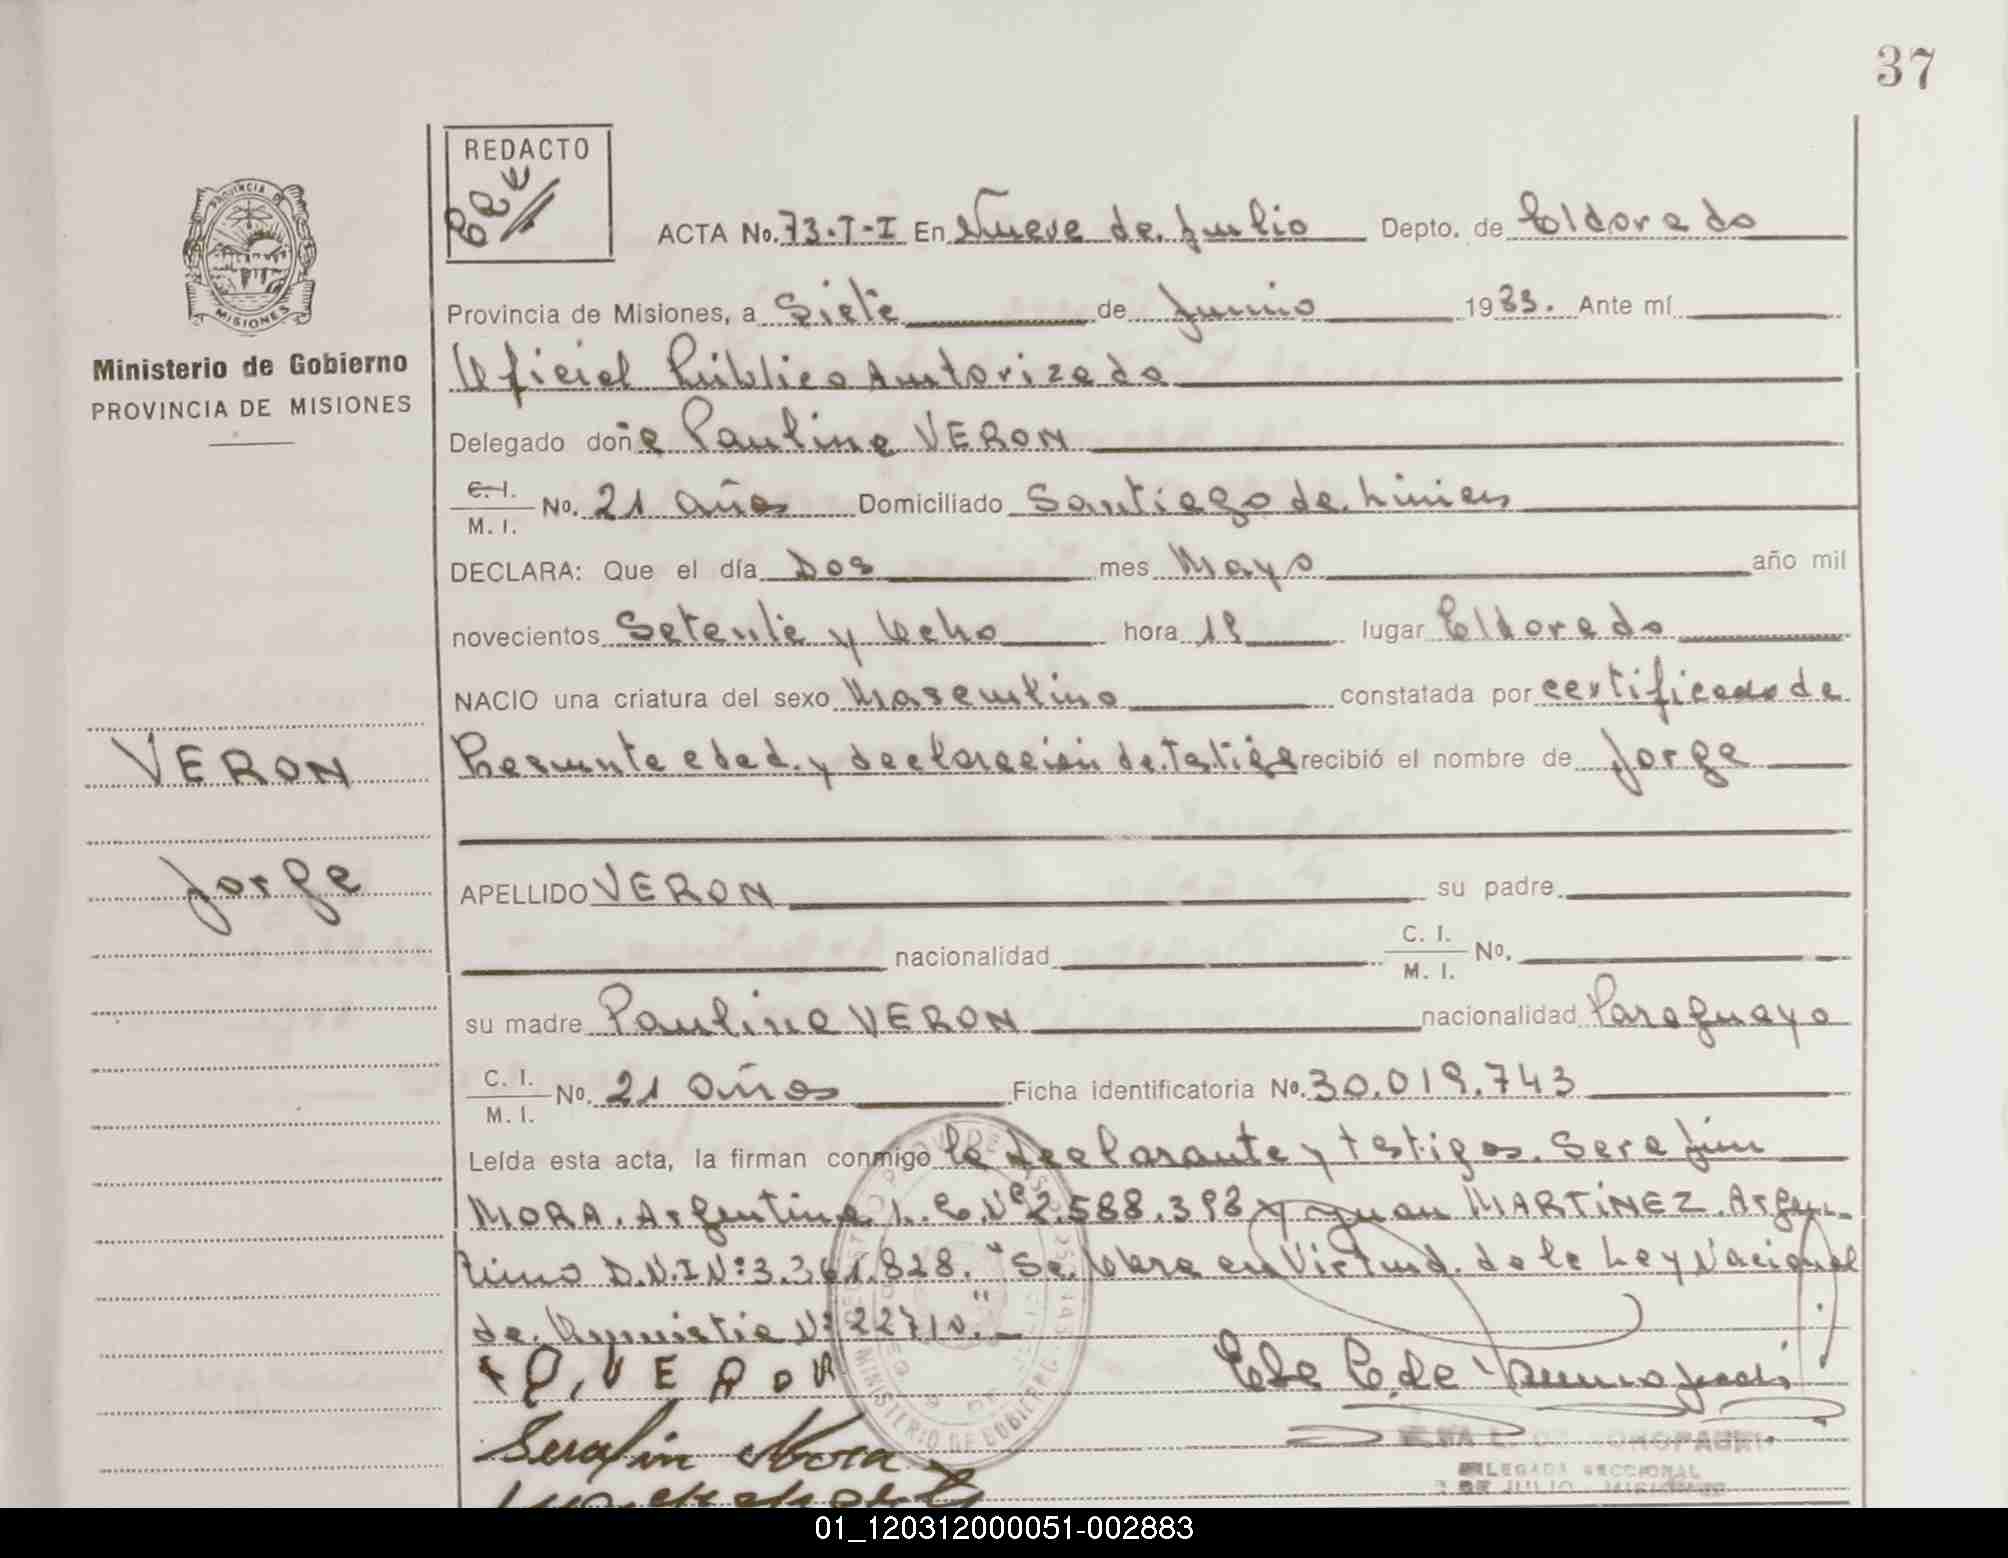 37
REDACTO
PROVINCIA DE
MISIONES
Ministerio de Gobierno
PROVINCIA DE MISIONES
ACTA No. 73-T-I En Nueve de Julio Depto. de Eldorado
Provincia de Misiones, a Siete de Junio 1983. Ante mí
Oficial Público Autorizado
Delegado doña Paulina VERON
C. I. / M. I. No. 21 años Domiciliado Santiago de Liniers
DECLARA: Que el día Dos mes Mayo año mil
novecientos Setenta y Ocho hora 19 lugar Eldorado
NACIO una criatura del sexo Masculino constatada por certificado de
Presunta edad y declaración de Testigo recibió el nombre de Jorge
VERON
Jorge
APELLIDO VERON su padre
nacionalidad C. I. / M. I. No.
su madre Paulina VERON nacionalidad Paraguaya
C. I. / M. I. No. 21 años Ficha identificatoria No. 30.019.743
Leída esta acta, la firman conmigo la declarante y testigos. Serafin
MORA. Argentino L.E.Nº 2.588.398 y Juan MARTINEZ. Argen-
tino D.N.I Nº 3.361.828. "Se labra en Virtud de la Ley Nacional
de Amnistia Nº 22710."
P, VERON
Serafin Mora
MINISTERIO DE GOBIERNO
DELEGADA SECCIONAL
9 DE JULIO - MISIONES
01_120312000051-002883